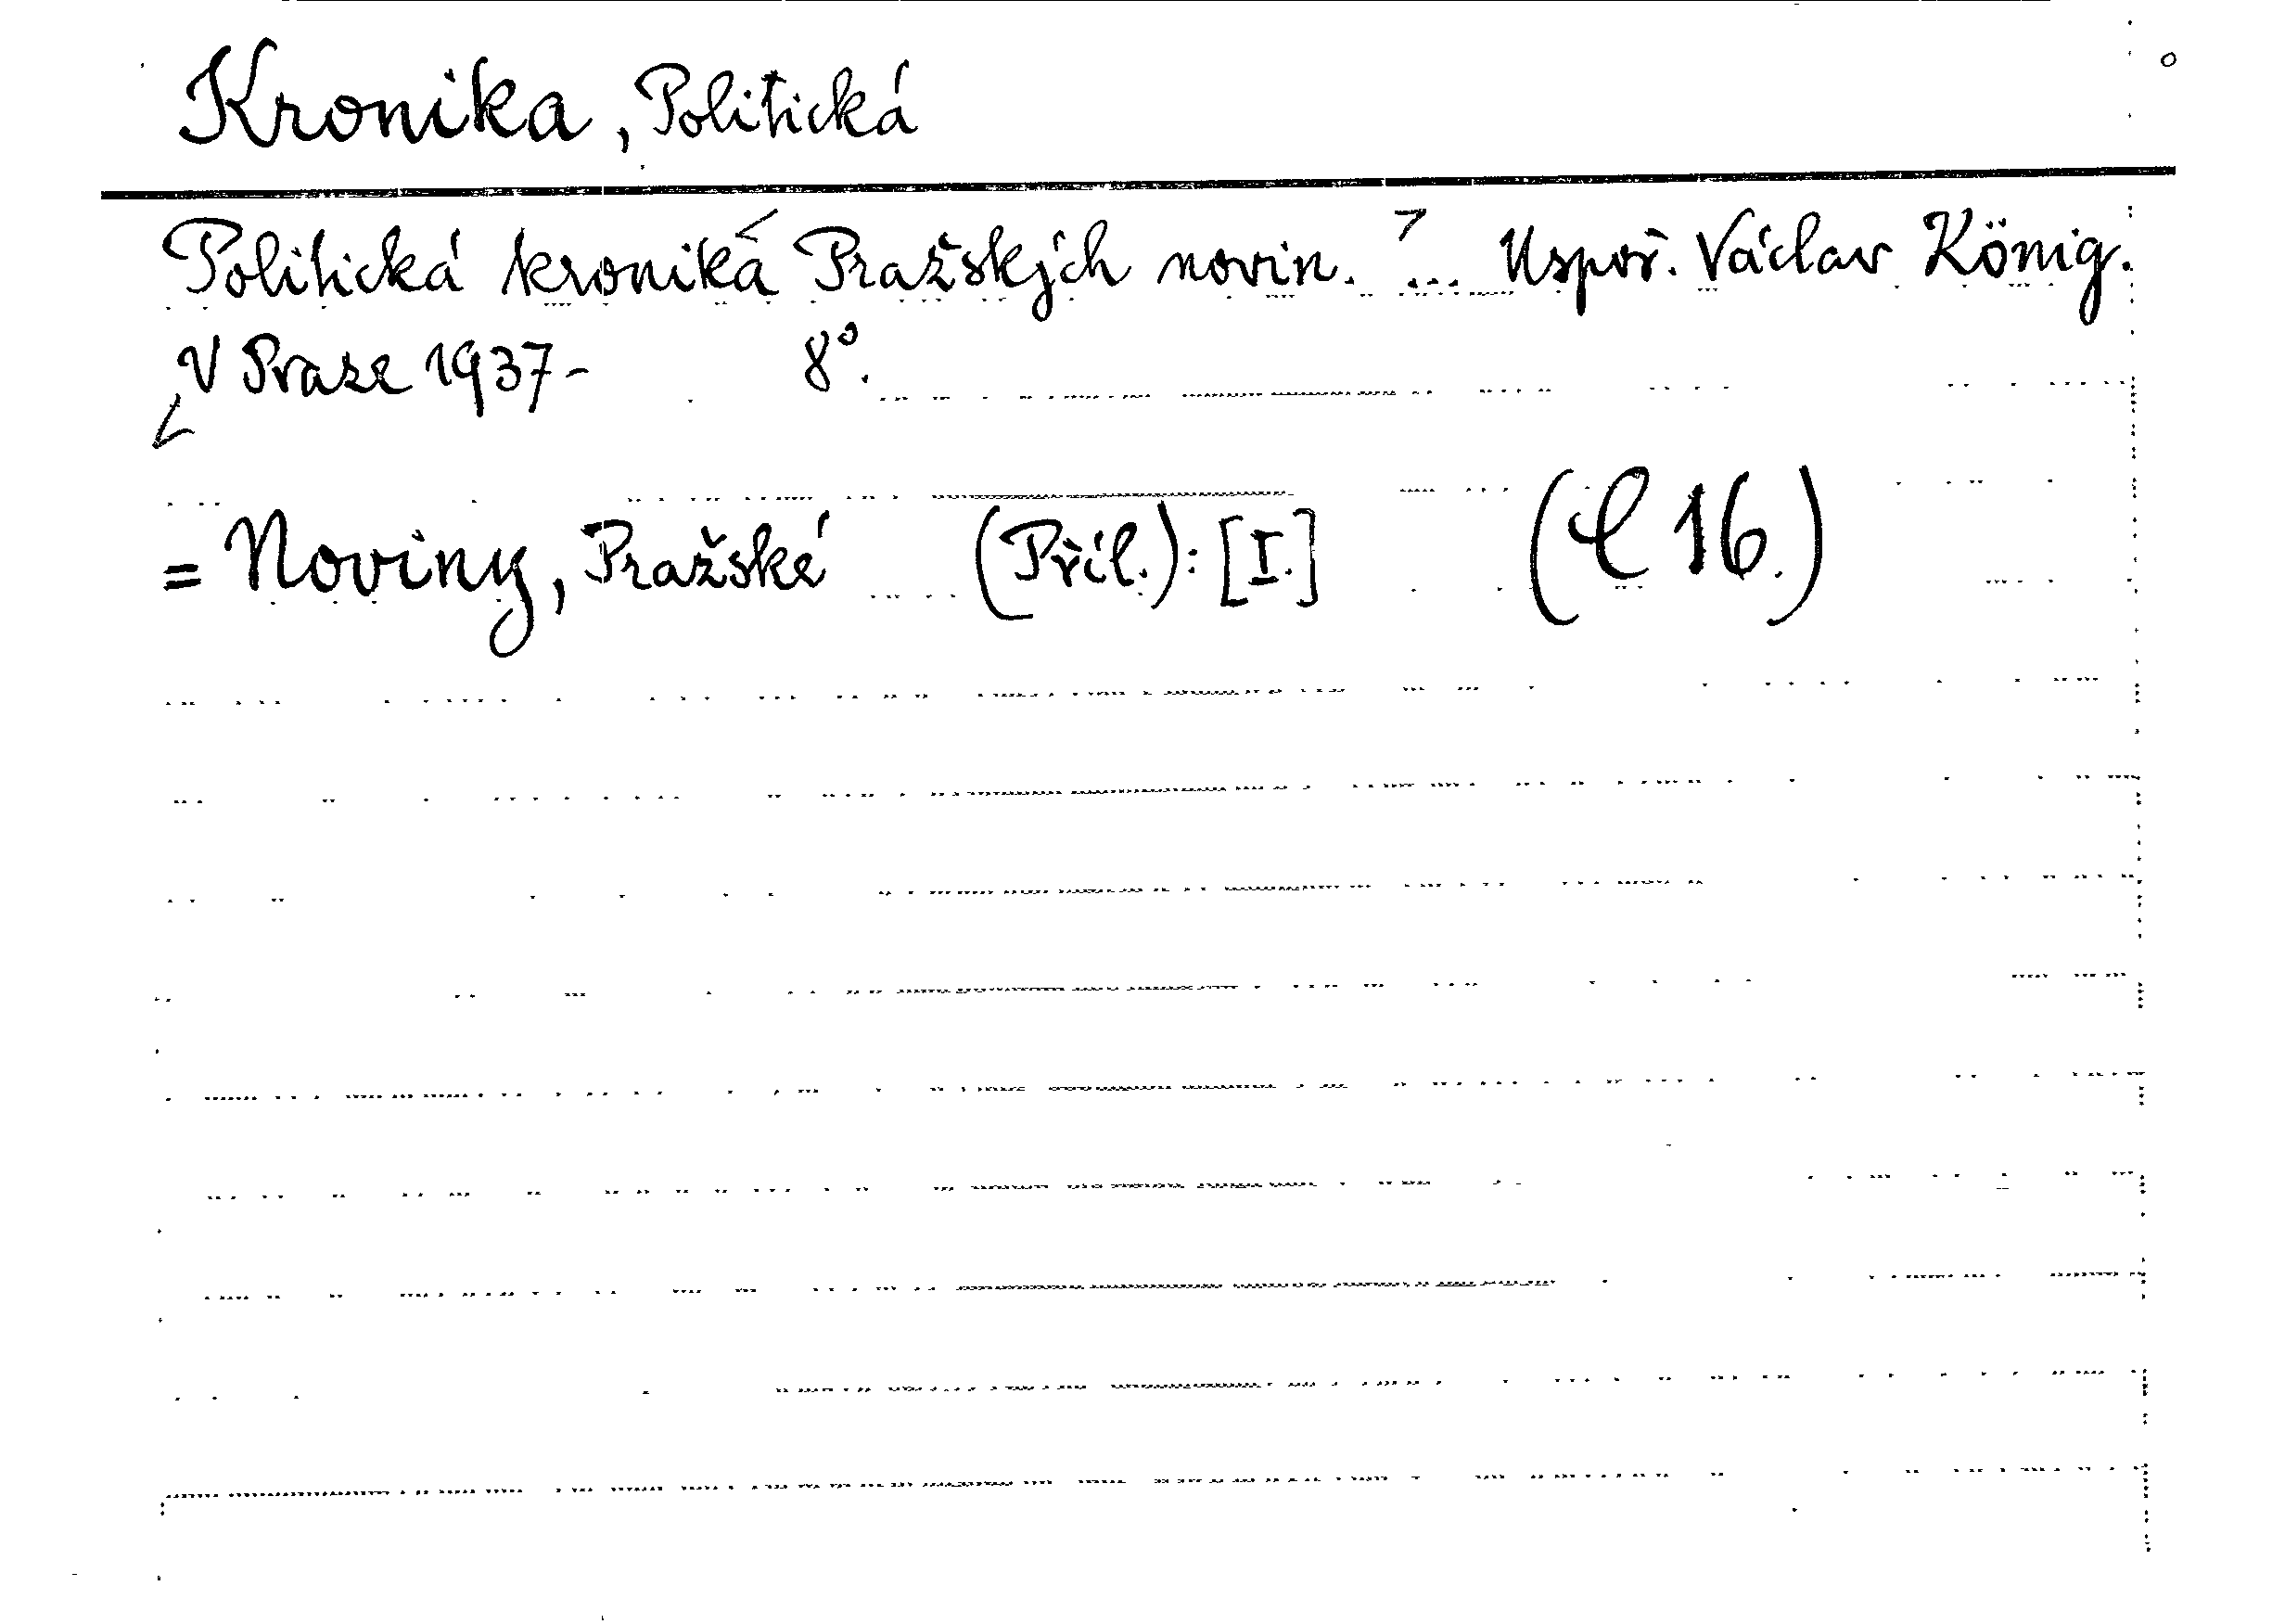 Kronika, Politická
Politická kronika Pražských novin. ... Uspoř. Václav König.
V Praze 1937- 8°.
= Noviny, Pražské (Příl.): [I.] (C 16.)